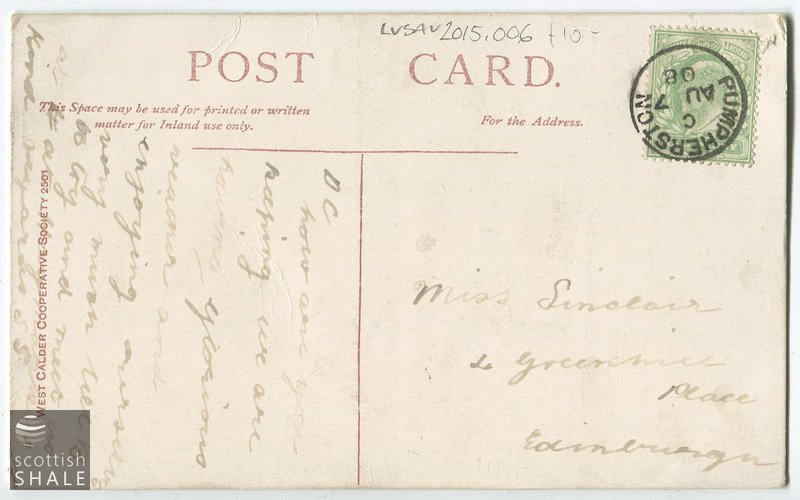 LVSAV2015.006 £10-
POST CARD.
This Space may be used for printed or written
matter for Inland use only.
For the Address.
PUMPHERSTON
C
7
AU
08
WEST CALDER COOPERATIVE SOCIETY 2501
D C
how are you
keeping we are
having glorious
weather and
enjoying ourselves
very much
try and meet
kind regards
Miss Sinclair
Greenhill
Place
Edinburgh
scottish
SHALE